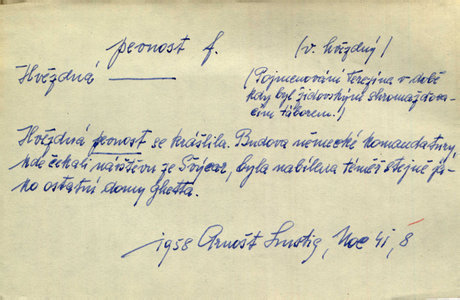 pevnost f. (v. hvězdný)
Hvězdná ——— (Pojmenování Terezína v době
kdy byl židovským shromažďova-
cím táborem!)
Hvězdná pevnost se krášlila. Budova německé komandatury,
kde čekali návštěvu ze Švýcar, byla nabílena téměř stejně ja-
ko ostatní domy ghetta.
1958 Arnošt Lustig, Noc 41, 8